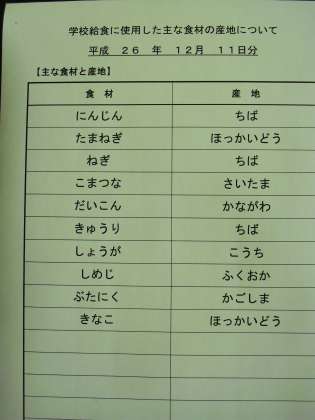 学校給食に使用した主な食材の産地について
平成　２６　年　１２月　１１日分
【主な食材と産地】
食　材　産　地
にんじん　ちば
たまねぎ　ほっかいどう
ねぎ　ちば
こまつな　さいたま
だいこん　かながわ
きゅうり　ちば
しょうが　こうち
しめじ　ふくおか
ぶたにく　かごしま
きなこ　ほっかいどう